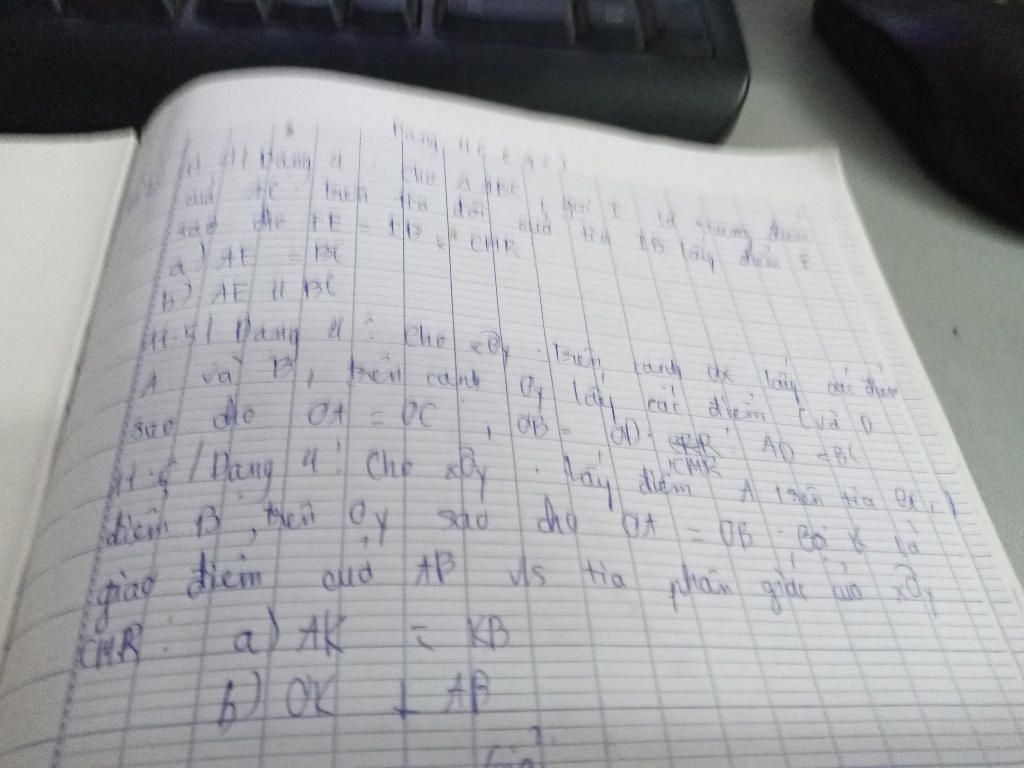 Dạng 4 ( g c g )
H.4/ Dạng 4 : Cho Δ ABC , gọi I là trung điểm
của AC . trên tia đối của tia IB lấy điểm E
sao cho IE = IB . CMR
a) AE = BC
b) AE // BC
H.5/ Dạng 4 : Cho xOy . trên cạnh Ox lấy các điểm
A và B , trên cạnh Oy lấy các điểm C và D
sao cho OA = OC , OB = OD . CMR : AD = BC
H.6/ Dạng 4 : Cho xOy . Lấy điểm A trên tia Ox ,
điểm B , trên Oy sao cho OA = OB . Gọi K là
giao điểm của AB vs tia phân giác của xOy
CMR : a) AK = KB
b) OK ⊥ AB
Giải